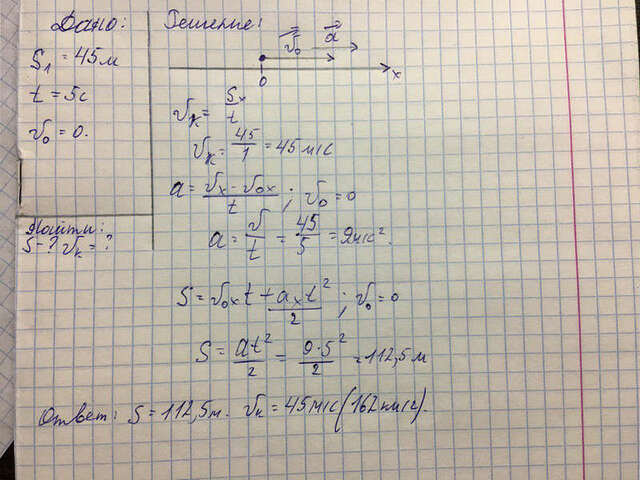 Дано:
S₁ = 45м
t = 5с
v₀ = 0.
Найти:
S-? vₖ = ?
Решение:
v₀ a
0 x
vₖ = Sₓ/t
vₖ = 45/1 = 45 м/с
a = (vₓ - v₀ₓ)/t ; v₀ = 0
a = v/t = 45/5 = 9м/с².
S = v₀ₓt + aₓt²/2 ; v₀ = 0
S = at²/2 = 9·5²/2 = 112,5 м
Ответ: S = 112,5м. vₖ = 45м/с (162км/ч).